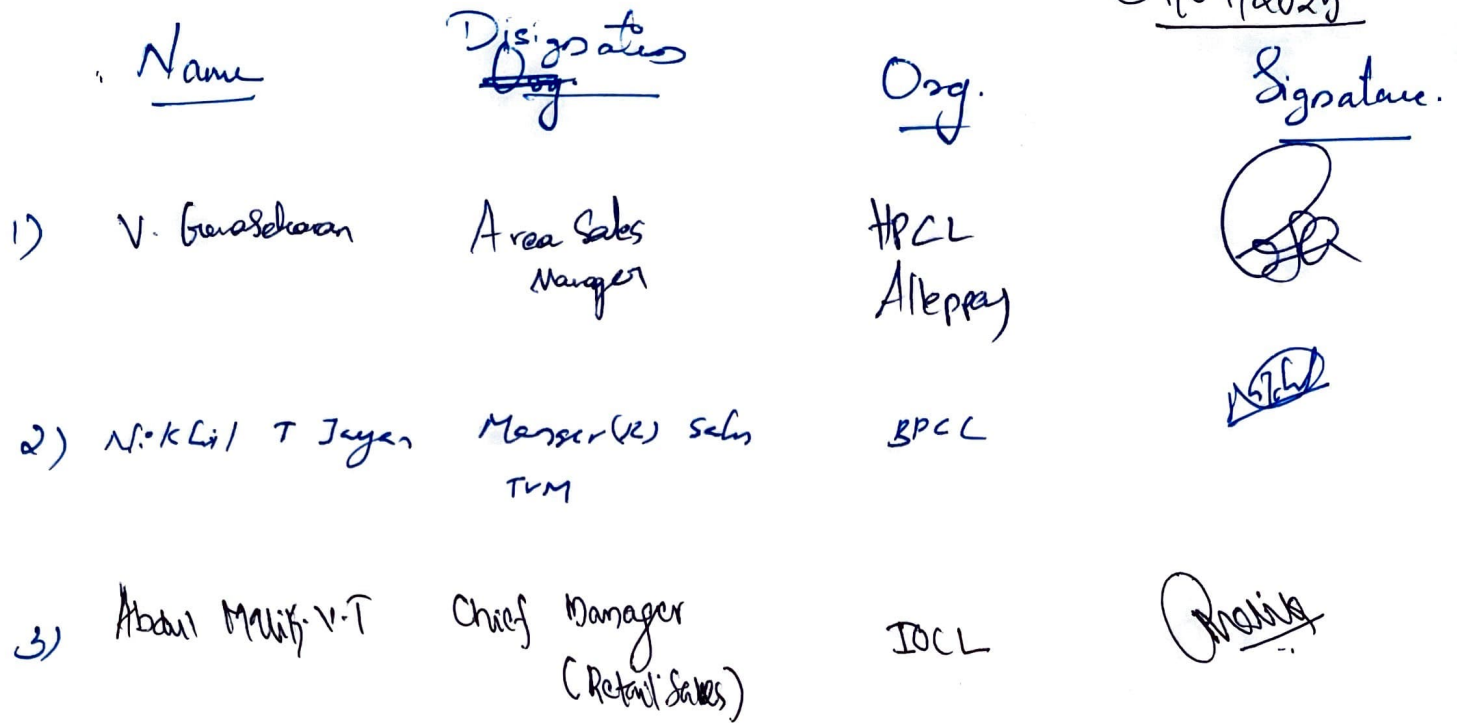 Name Disignation Org. Signature.
1) V. Gunasekaran Area Sales HPCL
Manager Alleppey
2) Nikhil T Jayan Manager (R) Sales BPCL
TVM
3) Abdul Malik. V.T Chief Manager IOCL
(Retail Sales)